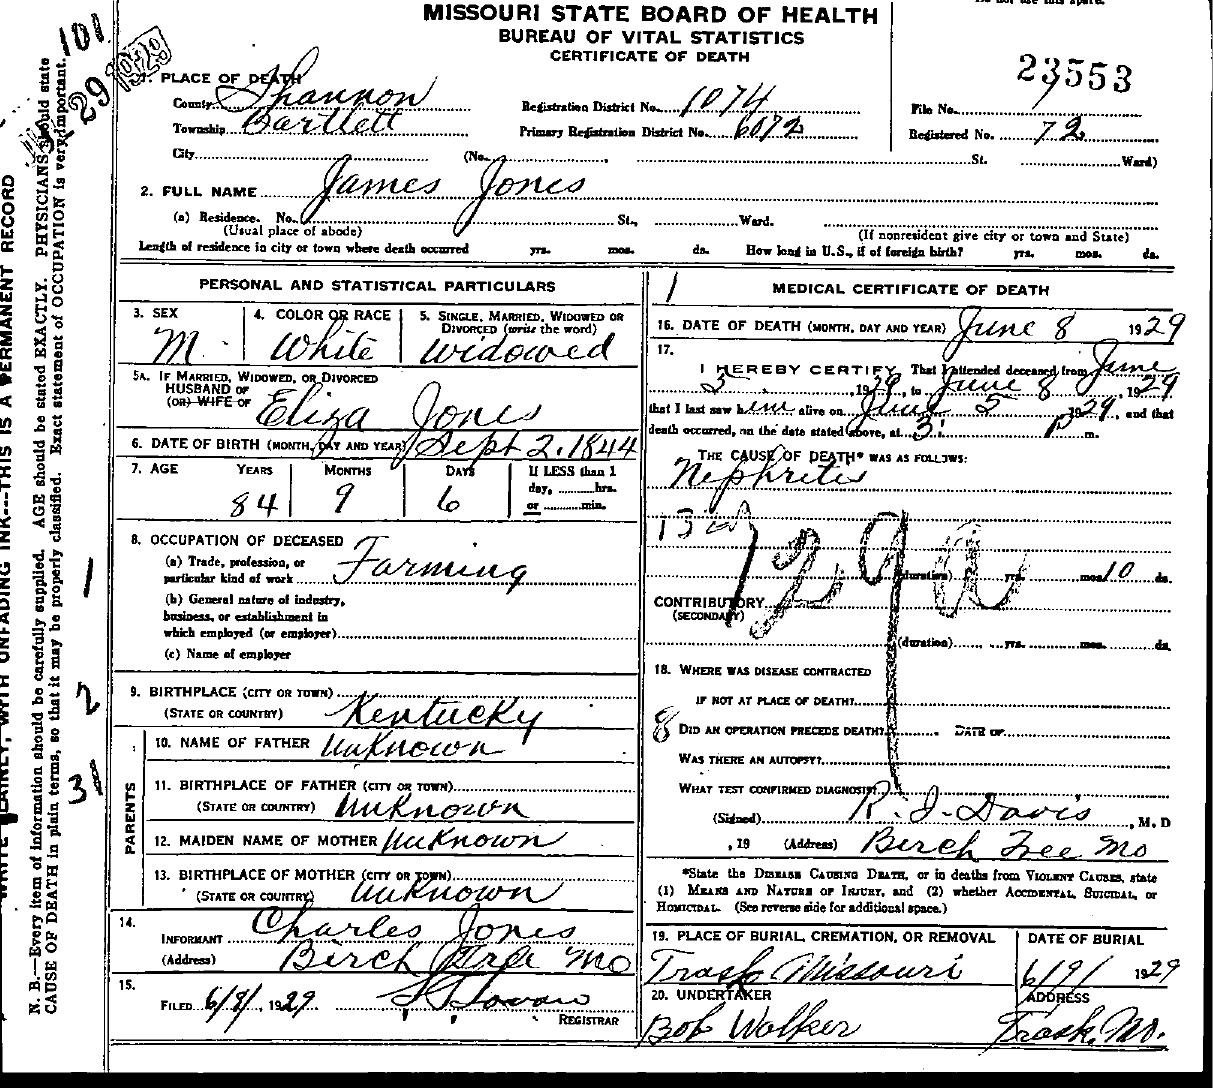 MISSOURI STATE BOARD OF HEALTH
BUREAU OF VITAL STATISTICS
CERTIFICATE OF DEATH
101
29 1929
23553
1. PLACE OF DEATH
County Shannon Registration District No. 1074 File No.
Township Bartlett Primary Registration District No. 6072 Registered No. 72
City (No. , St. Ward)
2. FULL NAME James Jones
(a) Residence. No. St., Ward.
(Usual place of abode) (If nonresident give city or town and State)
Length of residence in city or town where death occurred yrs. mos. ds. How long in U.S., if of foreign birth? yrs. mos. ds.
PERSONAL AND STATISTICAL PARTICULARS
3. SEX 4. COLOR OR RACE 5. SINGLE, MARRIED, WIDOWED OR DIVORCED (write the word)
M. White Widowed
5A. IF MARRIED, WIDOWED, OR DIVORCED
HUSBAND OF
(OR) WIFE OF Eliza Jones
6. DATE OF BIRTH (MONTH, DAY AND YEAR) Sept 2. 1844
7. AGE YEARS MONTHS DAYS If LESS than 1
day, hrs.
84 9 6 or min.
8. OCCUPATION OF DECEASED
(a) Trade, profession, or
particular kind of work Farming
(b) General nature of industry,
business, or establishment in
which employed (or employer)
(c) Name of employer
9. BIRTHPLACE (CITY OR TOWN)
(STATE OR COUNTRY) Kentucky
PARENTS
10. NAME OF FATHER Unknown
11. BIRTHPLACE OF FATHER (CITY OR TOWN)
(STATE OR COUNTRY) Unknown
12. MAIDEN NAME OF MOTHER Unknown
13. BIRTHPLACE OF MOTHER (CITY OR TOWN)
(STATE OR COUNTRY) Unknown
14.
INFORMANT Charles Jones
(Address) Birch Tree Mo
15.
FILED 6/8/, 1929
REGISTRAR
1 MEDICAL CERTIFICATE OF DEATH
16. DATE OF DEATH (MONTH, DAY AND YEAR) June 8 1929
17.
I HEREBY CERTIFY, That I attended deceased from June
5, 1929, to June 8, 1929
that I last saw him alive on June 5 1929, and that
death occurred, on the date stated above, at 3 P m.
THE CAUSE OF DEATH* WAS AS FOLLOWS:
Nephritis
129a
(duration) yrs. mos. 10 ds.
CONTRIBUTORY
(SECONDARY)
(duration) yrs. mos. ds.
18. WHERE WAS DISEASE CONTRACTED
IF NOT AT PLACE OF DEATH?
8 DID AN OPERATION PRECEDE DEATH? DATE OF
WAS THERE AN AUTOPSY?
WHAT TEST CONFIRMED DIAGNOSIS?
(Signed) R. I. Davis, M. D
, 19 (Address) Birch Tree Mo
*State the DISEASE CAUSING DEATH, or in deaths from VIOLENT CAUSES, state
(1) MEANS AND NATURE OF INJURY, and (2) whether ACCIDENTAL, SUICIDAL, or
HOMICIDAL. (See reverse side for additional space.)
19. PLACE OF BURIAL, CREMATION, OR REMOVAL DATE OF BURIAL
Trask Missouri 6/9/ 1929
20. UNDERTAKER ADDRESS
Bob Walker Trask, Mo.
WRITE PLAINLY, WITH UNFADING INK---THIS IS A PERMANENT RECORD
N. B.—Every item of information should be carefully supplied. AGE should be stated EXACTLY. PHYSICIANS should state
CAUSE OF DEATH in plain terms, so that it may be properly classified. Exact statement of OCCUPATION is very important.
1
2
31